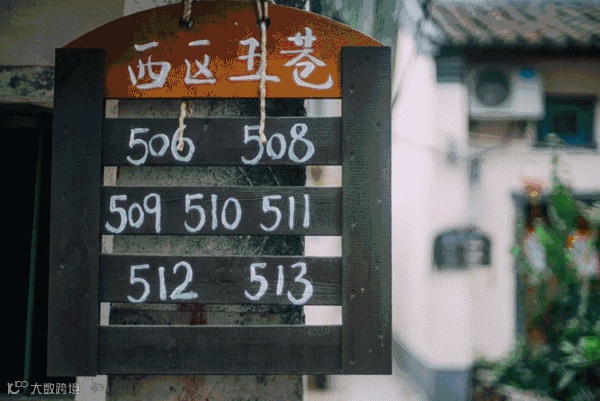 西区丑巷
506 508
509 510 511
512 513
大数跨境